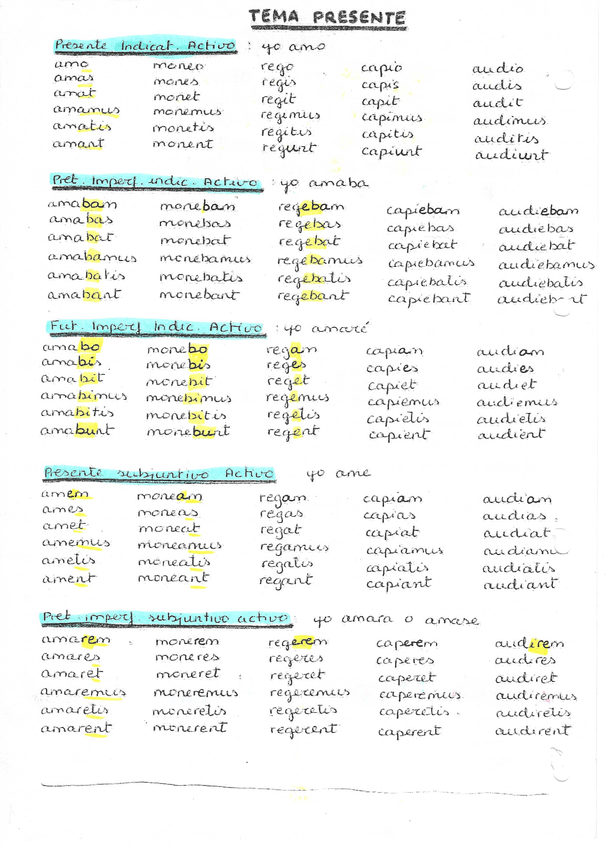 TEMA PRESENTE
Presente Indicat. Activo : yo amo
amo moneo rego capio audio
amas mones regis capis audis
amat monet regit capit audit
amamus monemus regimus capimus audimus
amatis monetis regitis capitis auditis
amant monent regunt capiunt audiunt
Pret. Imperf. indic. Activo : yo amaba
amabam monebam regebam capiebam audiebam
amabas monebas regebas capiebas audiebas
amabat monebat regebat capiebat audiebat
amabamus monebamus regebamus capiebamus audiebamus
amabatis monebatis regebatis capiebatis audiebatis
amabant monebant regebant capiebant audiebant
Fut. Imperf Indic. Activo : yo amaré
amabo monebo regam capiam audiam
amabis monebis reges capies audies
amabit monebit reget capiet audiet
amabimus monebimus regemus capiemus audiemus
amabitis monebitis regetis capietis audietis
amabunt monebunt regent capient audient
Presente subjuntivo Activo yo ame
amem moneam regam capiam audiam
ames moneas regas capias audias
amet moneat regat capiat audiat
amemus moneamus regamus capiamus audiamu
ametis moneatis regatis capiatis audiatis
ament moneant regant capiant audiant
Pret. imperf. subjuntivo activo : yo amara o amase
amarem monerem regerem caperem audirem
amares moneres regeres caperes audires
amaret moneret regeret caperet audiret
amaremus moneremus regeremus caperemus audiremus
amaretis moneretis regeretis caperetis audiretis
amarent monerent regerent caperent audirent